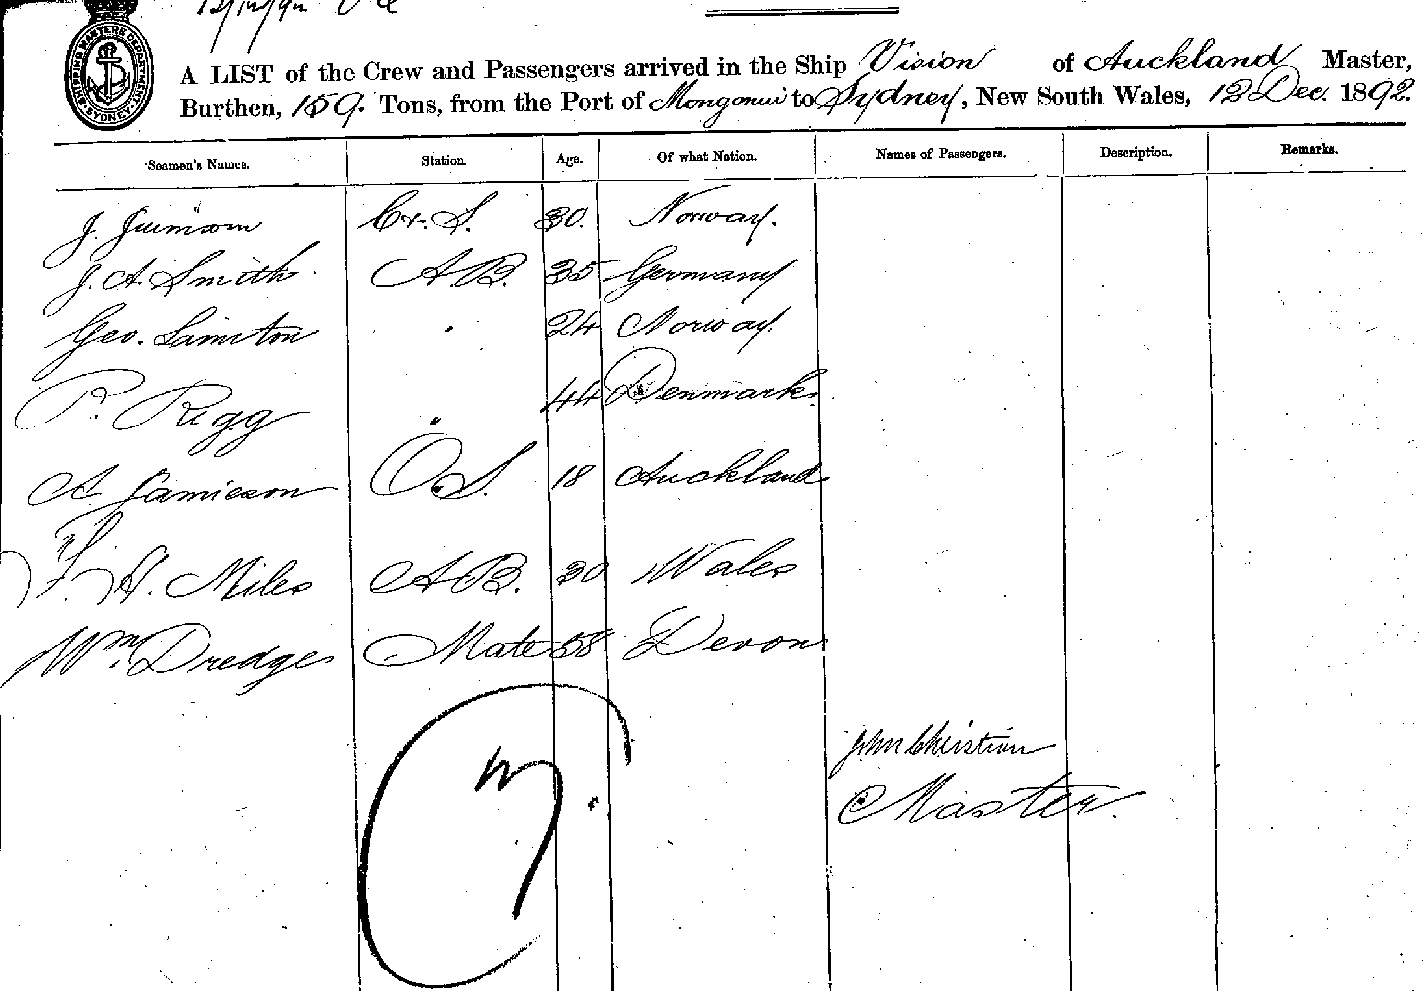 12/12/92
SHIPPING MASTERS DEPARTMENT SYDNEY
A LIST of the Crew and Passengers arrived in the Ship Vision of Auckland Master,
Burthen, 159. Tons, from the Port of Mongonui to Sydney, New South Wales, 12 Dec. 1892.
Seamen's Names. Station. Age. Of what Nation. Names of Passengers. Description. Remarks.
J. 30. Norway.
J. A. Smith A.B. 35 Germany
Geo. " 24 Norway.
P. Rigg " 44 Denmark.
A Jamieson O.S. 18 Auckland
H. Miles A.B. 30 Wales
Wm. Dredge Mate 58 Devon
John Christian
Master.